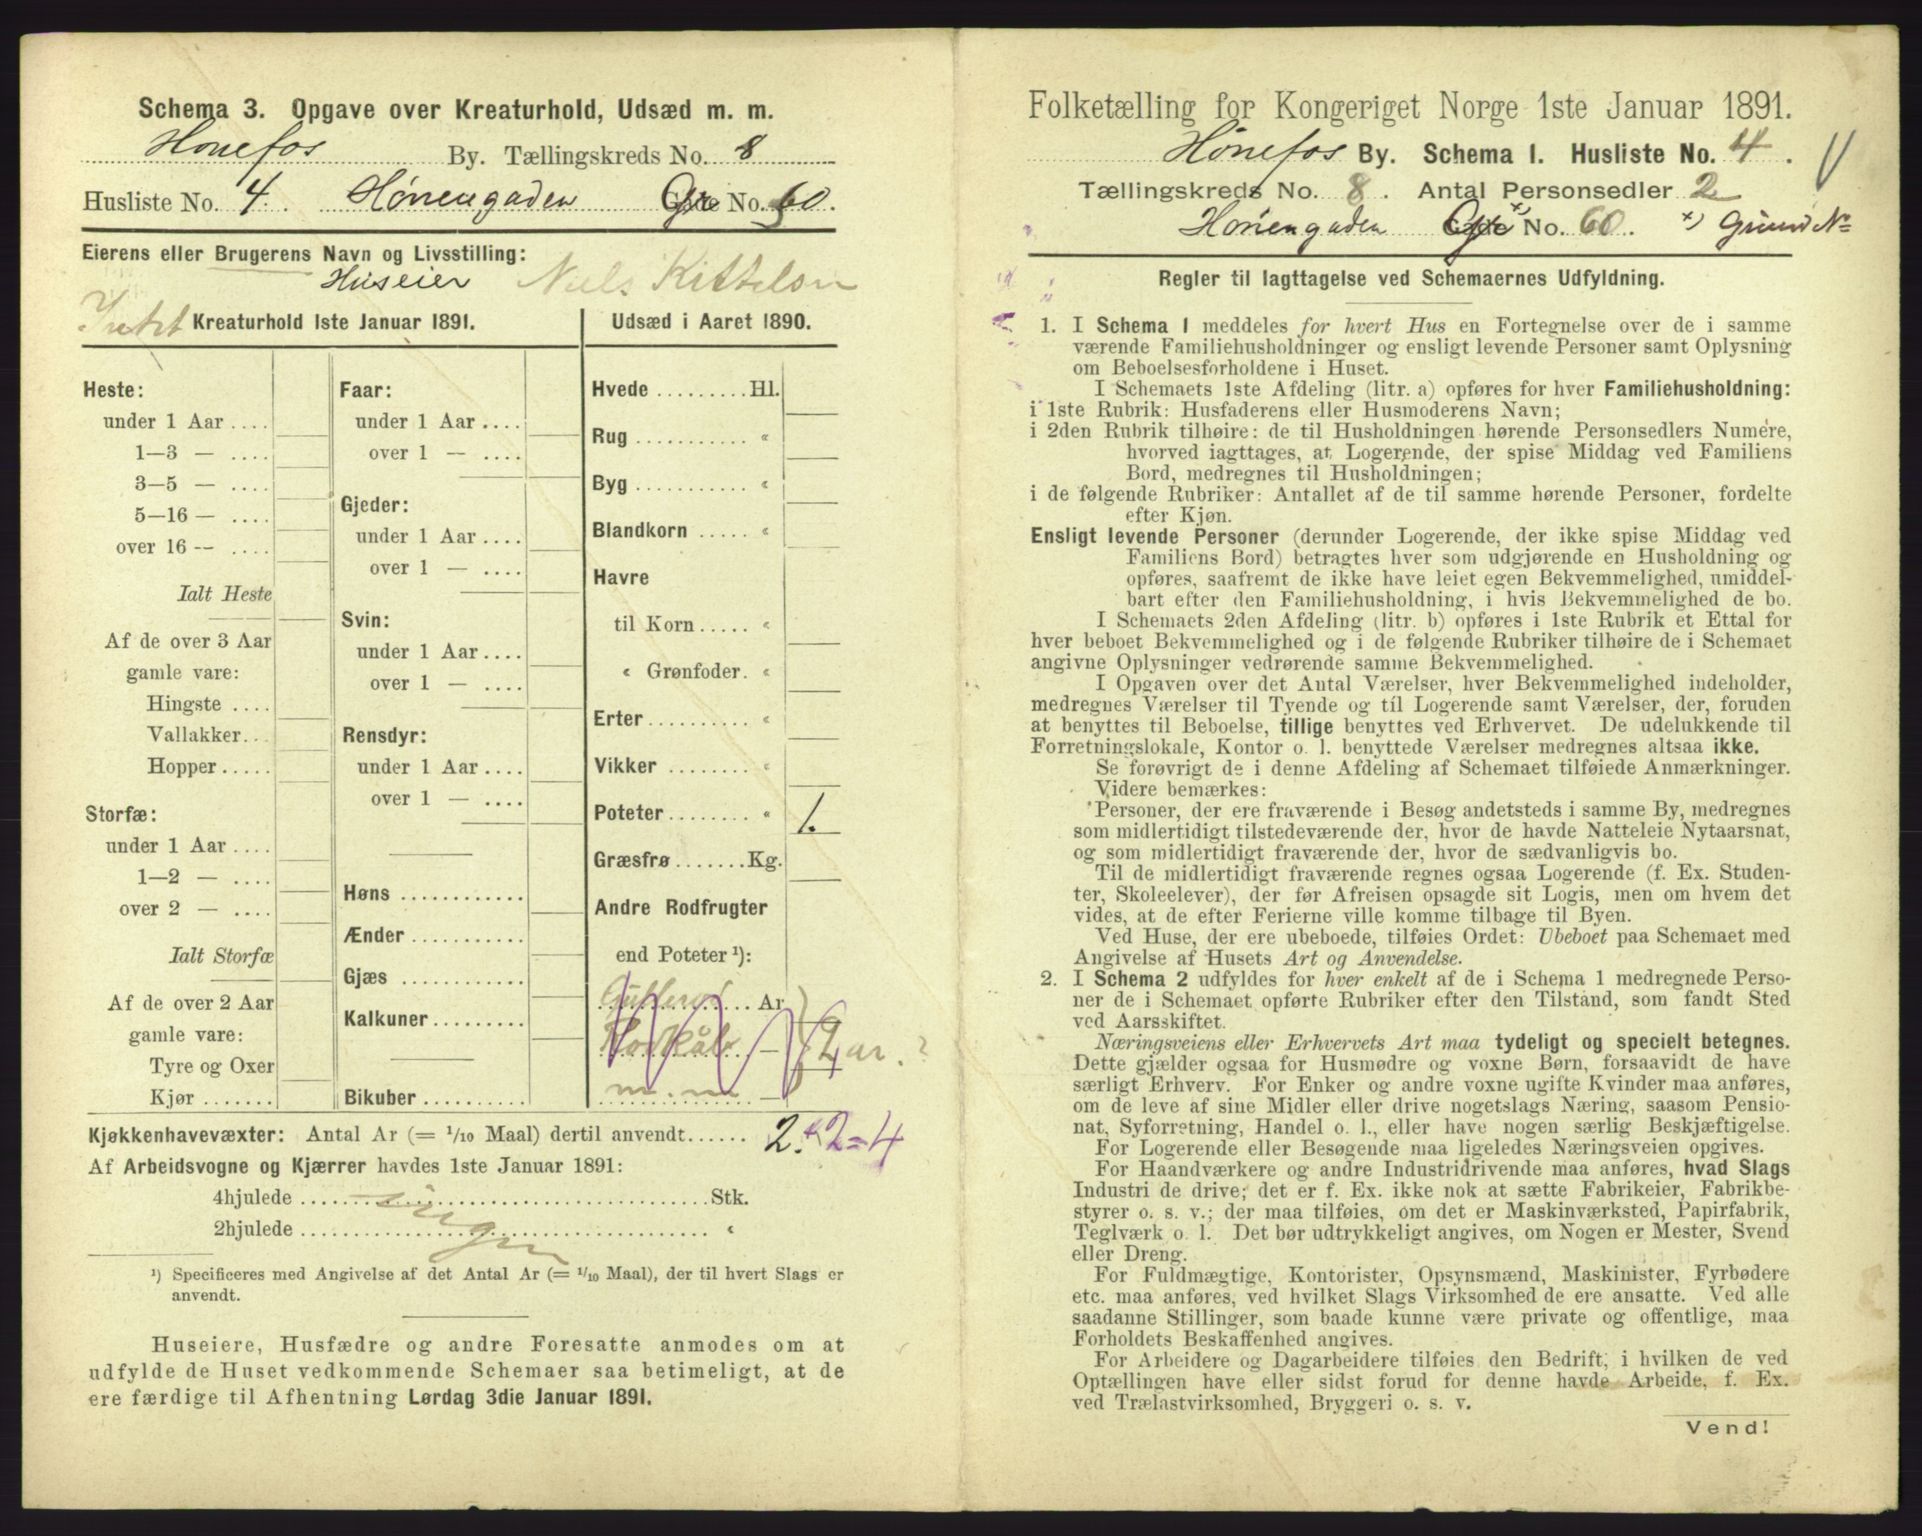 Schema 3. Opgave over Kreaturhold, Udsæd m. m.
Hønefos By. Tællingskreds No. 8
Husliste No. 4. Hønengaden No. 60.
Eierens eller Brugerens Navn og Livsstilling:
Huseier Niels Kittelsen
Intet Kreaturhold 1ste Januar 1891.
Udsæd i Aaret 1890.
Heste:
under 1 Aar ....
1—3 — ....
3—5 — ....
5—16 — ....
over 16 — ....
Ialt Heste
Af de over 3 Aar
gamle vare:
Hingste ....
Vallakker...
Hopper .....
Storfæ:
under 1 Aar ....
1—2 — ....
over 2 — ....
Ialt Storfæ
Af de over 2 Aar
gamle vare:
Tyre og Oxer
Kjør .......
Faar:
under 1 Aar ....
over 1 — ....
Gjeder:
under 1 Aar ....
over 1 — ....
Svin:
under 1 Aar ....
over 1 — ....
Rensdyr:
under 1 Aar ....
over 1 — ....
Høns ............
Ænder ...........
Gjæs ............
Kalkuner.........
Bikuber ..........
Hvede .........Hl.
Rug ........... “
Byg ........... “
Blandkorn ..... “
Havre
til Korn ..... “
“ Grønfoder. “
Erter .......... “
Vikker ......... “
Poteter ........ “ 1.
Græsfrø .......Kg.
Andre Rodfrugter
end Poteter ¹):
Gulerod ...... Ar
Kaalrabi — 2 ar. ?
m.m —
Kjøkkenhavevæxter: Antal Ar (= 1/10 Maal) dertil anvendt...... 2. +2=4
Af Arbeidsvogne og Kjærrer havdes 1ste Januar 1891:
4hjulede ........................................Stk.
2hjulede ........................................ “
ingen
¹) Specificeres med Angivelse af det Antal Ar (= 1/10 Maal), der til hvert Slags er
anvendt.
Huseiere, Husfædre og andre Foresatte anmodes om at
udfylde de Huset vedkommende Schemaer saa betimeligt, at de
ere færdige til Afhentning Lørdag 3die Januar 1891.
Folketælling for Kongeriget Norge 1ste Januar 1891.
Hønefos By. Schema 1. Husliste No. 4.
Tællingskreds No. 8. Antal Personsedler 2
Hønengaden No. 60. x) Grund No
Regler til Iagttagelse ved Schemaernes Udfyldning.
1. I Schema 1 meddeles for hvert Hus en Fortegnelse over de i samme
værende Familiehusholdninger og ensligt levende Personer samt Oplysning
om Beboelsesforholdene i Huset.
I Schemaets 1ste Afdeling (litr. a) opføres for hver Familiehusholdning:
i 1ste Rubrik: Husfaderens eller Husmoderens Navn;
i 2den Rubrik tilhøire: de til Husholdningen hørende Personsedlers Numere,
hvorved iagttages, at Logerende, der spise Middag ved Familiens
Bord, medregnes til Husholdningen;
i de følgende Rubriker: Antallet af de til samme hørende Personer, fordelte
efter Kjøn.
Ensligt levende Personer (derunder Logerende, der ikke spise Middag ved
Familiens Bord) betragtes hver som udgjørende en Husholdning og
opføres, saafremt de ikke have leiet egen Bekvemmelighed, umiddel-
bart efter den Familiehusholdning, i hvis Bekvemmelighed de bo.
I Schemaets 2den Afdeling (litr. b) opføres i 1ste Rubrik et Ettal for
hver beboet Bekvemmelighed og i de følgende Rubriker tilhøire de i Schemaet
angivne Oplysninger vedrørende samme Bekvemmelighed.
I Opgaven over det Antal Værelser, hver Bekvemmelighed indeholder,
medregnes Værelser til Tyende og til Logerende samt Værelser, der, foruden
at benyttes til Beboelse, tillige benyttes ved Erhvervet. De udelukkende til
Forretningslokale, Kontor o. l. benyttede Værelser medregnes altsaa ikke.
Se forøvrigt de i denne Afdeling af Schemaet tilføiede Anmærkninger.
Videre bemærkes:
Personer, der ere fraværende i Besøg andetsteds i samme By, medregnes
som midlertidigt tilstedeværende der, hvor de havde Natteleie Nytaarsnat,
og som midlertidigt fraværende der, hvor de sædvanligvis bo.
Til de midlertidigt fraværende regnes ogsaa Logerende (f. Ex. Studen-
ter, Skoleelever), der før Afreisen opsagde sit Logis, men om hvem det
vides, at de efter Ferierne ville komme tilbage til Byen.
Ved Huse, der ere ubeboede, tilføies Ordet: Ubeboet paa Schemaet med
Angivelse af Husets Art og Anvendelse.
2. I Schema 2 udfyldes for hver enkelt af de i Schema 1 medregnede Perso-
ner de i Schemaet opførte Rubriker efter den Tilstand, som fandt Sted
ved Aarsskiftet.
Næringsveiens eller Erhvervets Art maa tydeligt og specielt betegnes.
Dette gjælder ogsaa for Husmødre og voxne Børn, forsaavidt de have
særligt Erhverv. For Enker og andre voxne ugifte Kvinder maa anføres,
om de leve af sine Midler eller drive nogetslags Næring, saasom Pensio-
nat, Syforretning, Handel o. l., eller have nogen særlig Beskjæftigelse.
For Logerende eller Besøgende maa ligeledes Næringsveien opgives.
For Haandværkere og andre Industridrivende maa anføres, hvad Slags
Industri de drive; det er f. Ex. ikke nok at sætte Fabrikeier, Fabrikbe-
styrer o. s. v.; der maa tilføies, om det er Maskinværksted, Papirfabrik,
Teglværk o. l. Det bør udtrykkeligt angives, om Nogen er Mester, Svend
eller Dreng.
For Fuldmægtige, Kontorister, Opsynsmænd, Maskinister, Fyrbødere
etc. maa anføres, ved hvilket Slags Virksomhed de ere ansatte. Ved alle
saadanne Stillinger, som baade kunne være private og offentlige, maa
Forholdets Beskaffenhed angives.
For Arbeidere og Dagarbeidere tilføies den Bedrift, i hvilken de ved
Optællingen have eller sidst forud for denne havde Arbeide, f. Ex.
ved Trælastvirksomhed, Bryggeri o. s. v.
Vend!